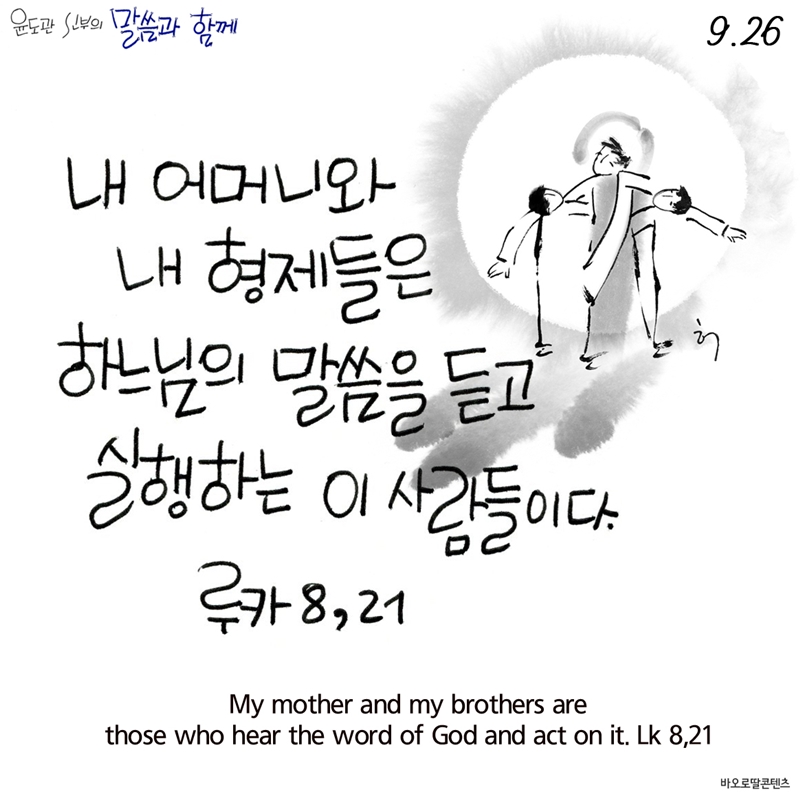 윤도관 신부의 말씀과 함께
9.26
내 어머니와
내 형제들은
하느님의 말씀을 듣고
실행하는 이 사람들이다.
루카 8,21
허
My mother and my brothers are
those who hear the word of God and act on it. Lk 8,21
바오로딸콘텐츠